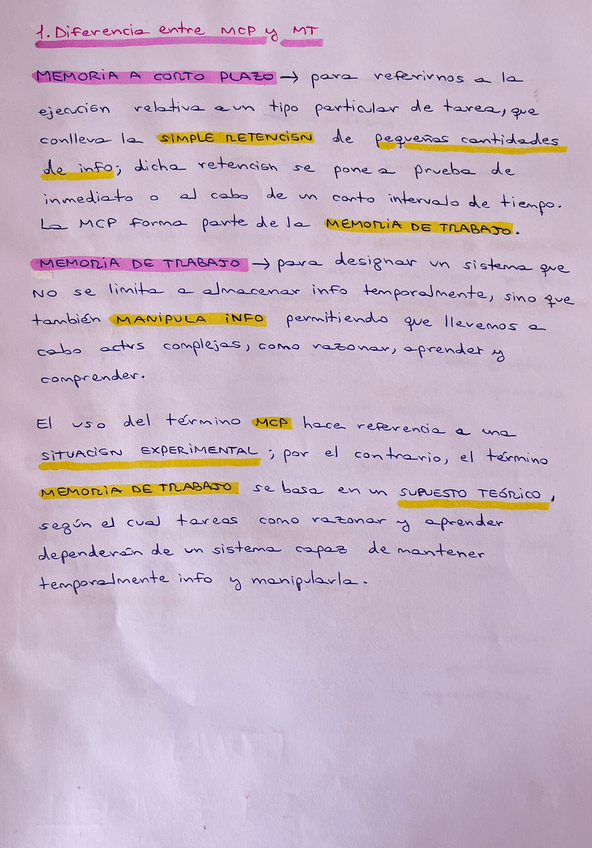 1. Diferencia entre MCP y MT
MEMORIA A CORTO PLAZO → para referirnos a la
ejecución relativa a un tipo particular de tarea, que
conlleva la SIMPLE RETENCIÓN de pequeñas cantidades
de info; dicha retención se pone a prueba de
inmediato o al cabo de un corto intervalo de tiempo.
La MCP forma parte de la MEMORIA DE TRABAJO.
MEMORIA DE TRABAJO → para designar un sistema que
NO se limita a almacenar info temporalmente, sino que
también MANIPULA INFO permitiendo que llevemos a
cabo actvs complejas, como razonar, aprender y
comprender.
El uso del término MCP hace referencia a una
SITUACIÓN EXPERIMENTAL; por el contrario, el término
MEMORIA DE TRABAJO se basa en un SUPUESTO TEÓRICO,
según el cual tareas como razonar y aprender
dependerán de un sistema capaz de mantener
temporalmente info y manipularla.